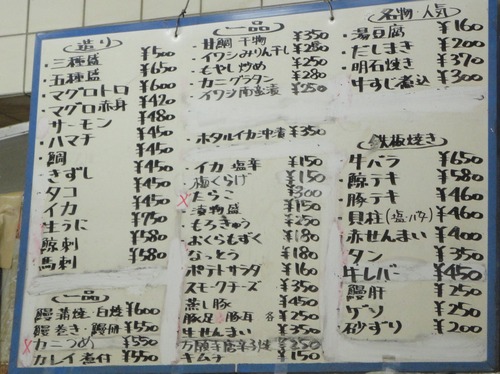 造り
・三種盛 ¥500
・五種盛 ¥650
・マグロトロ ¥600
・マグロ赤身 ¥420
サーモン ¥480
ハマチ ¥450
・鯛 ¥450
きずし ¥450
タコ ¥450
イカ ¥450
生うに ¥750
鯨刺 ¥580
馬刺 ¥580
一品
鰻蒲焼・白焼 ¥600
鰻巻き・鰻 ¥550
カニつめ ¥550
カレイ煮付 ¥550
一品
・甘鯛干物 ¥350
・イワシみりん干し ¥280
・もやし炒め ¥250
・カニグラタン ¥280
・イワシ ¥250
・ホタルイカ沖漬 ¥350
・イカ塩辛 ¥150
梅くらげ ¥150
たらこ ¥300
漬物盛 ¥150
もろきゅう ¥250
おくらもずく ¥180
なっとう ¥180
ポテトサラダ ¥160
スモークチーズ ¥350
蒸し豚 ¥450
豚足 豚耳 各 ¥250
牛せんまい ¥350
万願寺唐辛子焼 ¥250
キムチ ¥150
名物・人気
・湯豆腐 ¥160
・だしまき ¥200
・明石焼き ¥370
・牛すじ煮込 ¥300
鉄板焼き
牛バラ ¥650
鯨テキ ¥580
豚テキ ¥460
貝柱(塩・バタ) ¥460
赤せんまい ¥400
タン ¥350
牛レバー ¥450
鰻肝 ¥250
ゲソ ¥250
砂ずり ¥200